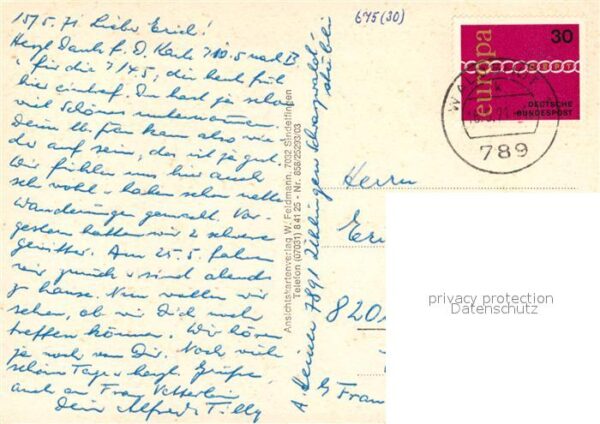 15/5. 71. Lieber Erich!
Herzl. Dank f. D. Karte v. 10.5 nach B
u. für die v. 14.5, die heute früh
hier eintraf. Du hast ja schon
viel Schönes unternommen.
Deine lb. Frau kann also wie-
der auf sein, das ist ja gut.
Wir fühlen uns hier auch
sehr wohl u. haben schon nette
Wanderungen gemacht. Vor-
gestern hatten wir 2 schwere
Gewitter. Am 25.5. fahren
wir zurück u. sind abends
z' hause. Nun wollen wir
sehen, ob wir Dich noch
treffen können. Wir hören
ja noch von Dir. Noch viele
schöne Tage u. herzl. Grüße,
auch an Frau
Dein Alfred u. Tilly
Ansichtskartenverlag W. Feldmann, 7032 Sindelfingen
Telefon (07031) 8 41 25 - Nr. 658/25293/03
A. 7891 Schwarzwald
675 (30)
30
europa
DEUTSCHE
BUNDESPOST
789
Herrn
820
privacy protection
Datenschutz